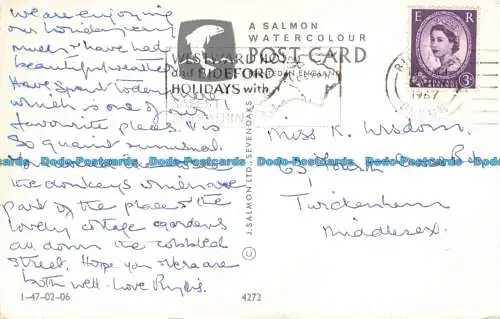 We are enjoying
our holiday very
much & have had
beautiful weather
Have spent today here
which is one of our
favourite places. It is
so quaint
the donkeys which are
part of the place & the
lovely cottage gardens
all down the cobbled
street. Hope you & Vera are
both well. Love Phyllis.
1-47-02-06
A SALMON
WATERCOLOUR
POST CARD
WESTWARD HO
and BIDEFORD
HOLIDAYS with
J. SALMON LTD., SEVENOAKS ©
4272
E R
3D
1967
DEVON
Miss K. Wisdom.
65 Fourth Cross Rd
Twickenham
Middlesex.
Dado-Postcards Dado-Postcards Dado-Postcards Dado-Postcards Dado-Postcards